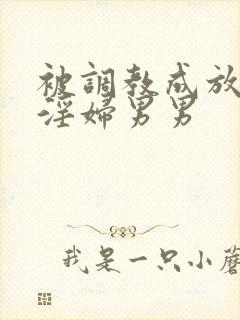 被調教成放
淫婦男男
我是一只小蘑